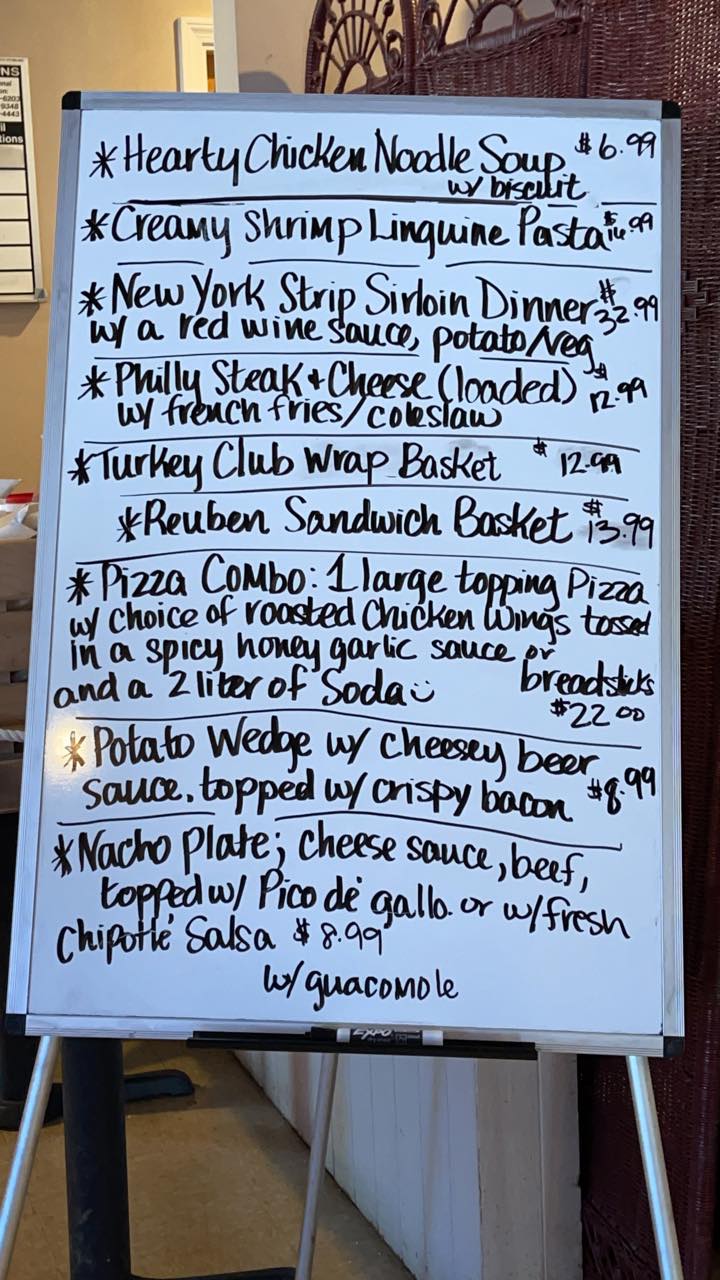 NS
nal
on:
-6203
9348
-4443
il
tions
*Hearty Chicken Noodle Soup $6.99
w/ biscuit
*Creamy Shrimp Linguine Pasta
*New York Strip Sirloin Dinner $32.99
w/ a red wine sauce, potato/Veg
*Philly Steak + Cheese (loaded) $12.99
w/ french fries/coleslaw
*Turkey Club Wrap Basket $12.99
*Reuben Sandwich Basket $13.99
*Pizza Combo: 1 large topping Pizza
w/ choice of roasted Chicken Wings tossed
in a spicy honey garlic sauce or
breadsticks
and a 2 liter of Soda
$22.00
*Potato Wedge w/ cheesey beer
sauce. topped w/ crispy bacon $8.99
*Nacho Plate; cheese sauce, beef,
topped w/ Pico dé gallo. or w/ fresh
Chipotlé Salsa $8.99
w/ guacomole
EXPO